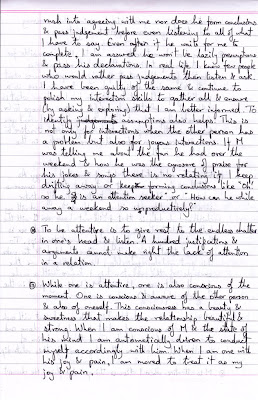 rush into agreeing with me nor does he form conclusions
& pass judgement before even listening to all of what
I have to say. Even after if he waits for me to
complete, I am assured he won't be basing presumptions
& pass his declarations. In real life I know few people
who would rather pass judgements than listen & ask.
I have been guilty of the same & continue to
polish my interaction skills to gather all & ensure
(by asking & exploring) that I am better informed. To
identify assumptions also helps. This is
not only for interactions when the other person has
a problem but also for joyous interactions. If M
was telling me about the fun he had over the
weekend & how he was the cynosure of praise for
his jokes & songs there is no relating if I keep
drifting away or keep forming conclusions like "Oh'
so he is an attention seeker" or "How can he while
away a weekend so unproductively"
To be attentive is to give rest to the endless chatter
in one's head & listen. A hundred justifications &
arguments cannot make right the lack of attention
in a relation.
While one is attentive, one is also conscious of the
moment. One is conscious & aware of the other person
& also of oneself. This consciousness has a beauty &
sweetness that makes the relationship beautiful &
strong. When I am conscious of M & the state of
his mind I am automatically driven to conduct
myself accordingly with him. When I am one with
his joy & pain, I am moved to treat it as my
joy & pain.